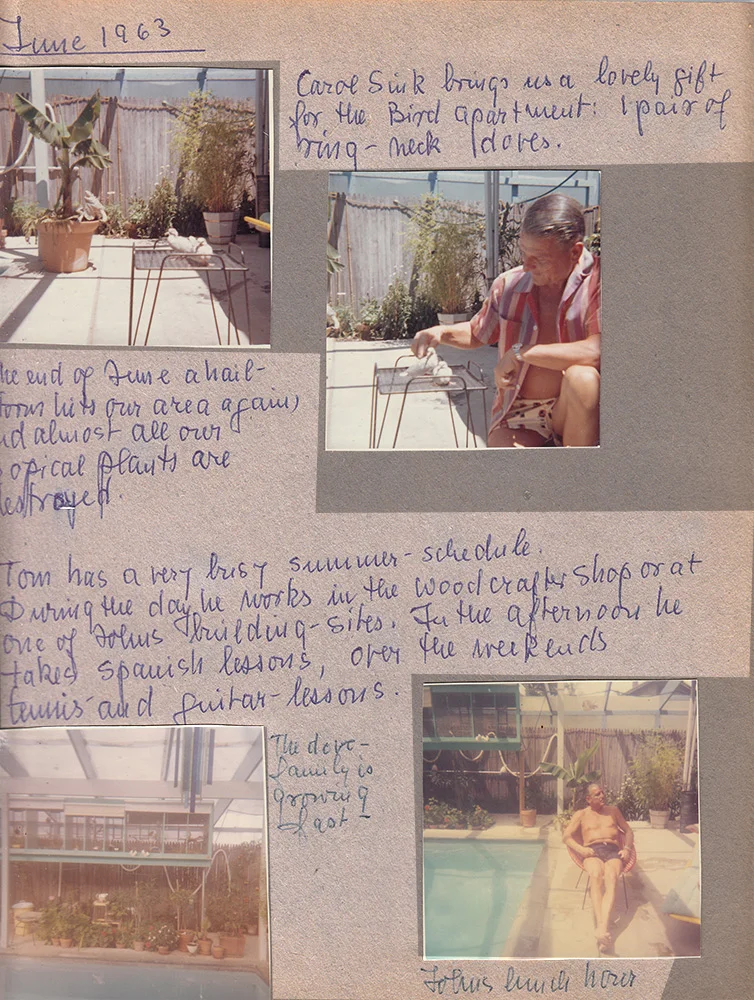 June 1963
Carol Sink brings us a lovely gift
for the Bird apartment: 1 pair of
ring-neck doves.
he end of June a hail-
torm hits our area again,
nd almost all our
opical plants are
destroyed.
Tom has a very busy summer-schedule.
During the day he works in the woodcrafter shop or at
one of Johns building-sites. In the afternoon he
takes spanish lessons, over the weekends
tennis and guitar-lessons.
The dove-
family is
growing
fast-
Johns lunch hour